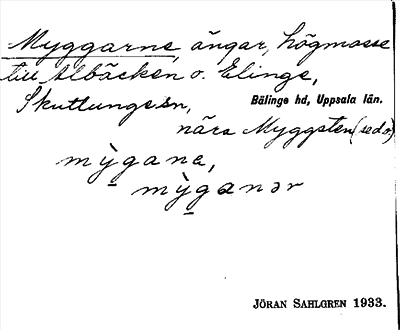 Myggarne, ängar, högmosse
till Albäcken o. Elinge,
Skuttungesn,
Bälinge hd, Uppsala län.
nära Myggsten (se d.o.)
mỳgana,
mỳganər
JÖRAN SAHLGREN 1933.